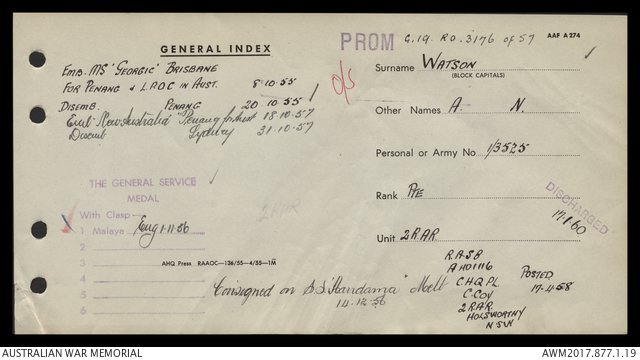 GENERAL INDEX
PROM C.19. R.O. 3176 of 57
AAF A 274
EMB. MS "GEORGIC" BRISBANE
FOR PENANG & L.A.O.C IN AUST. 8.10.55
DISEMB. PENANG 20.10.55
Emb "New Australia" Penang for Aust 18.10.57
Disemb Sydney 31.10.57
O/S
Surname WATSON
(BLOCK CAPITALS)
Other Names A. N.
Personal or Army No. 1/3525
Rank PTE
Unit 2 RAR
DISCHARGED
17.1.60
THE GENERAL SERVICE
MEDAL
With Clasp
1 Malaya Eng 1.11.56
2
3
4
5
6
2 RAR
AHQ Press RAAOC—136/55—4/55—1M
Consigned on S.S. "Kandama" Melb
14.12.56
R.A.S.B
A HD 1116
C HQ PL
C COY
2 RAR
HOLSWORTHY
NSW
POSTED
17.4.58
AUSTRALIAN WAR MEMORIAL
AWM2017.877.1.19